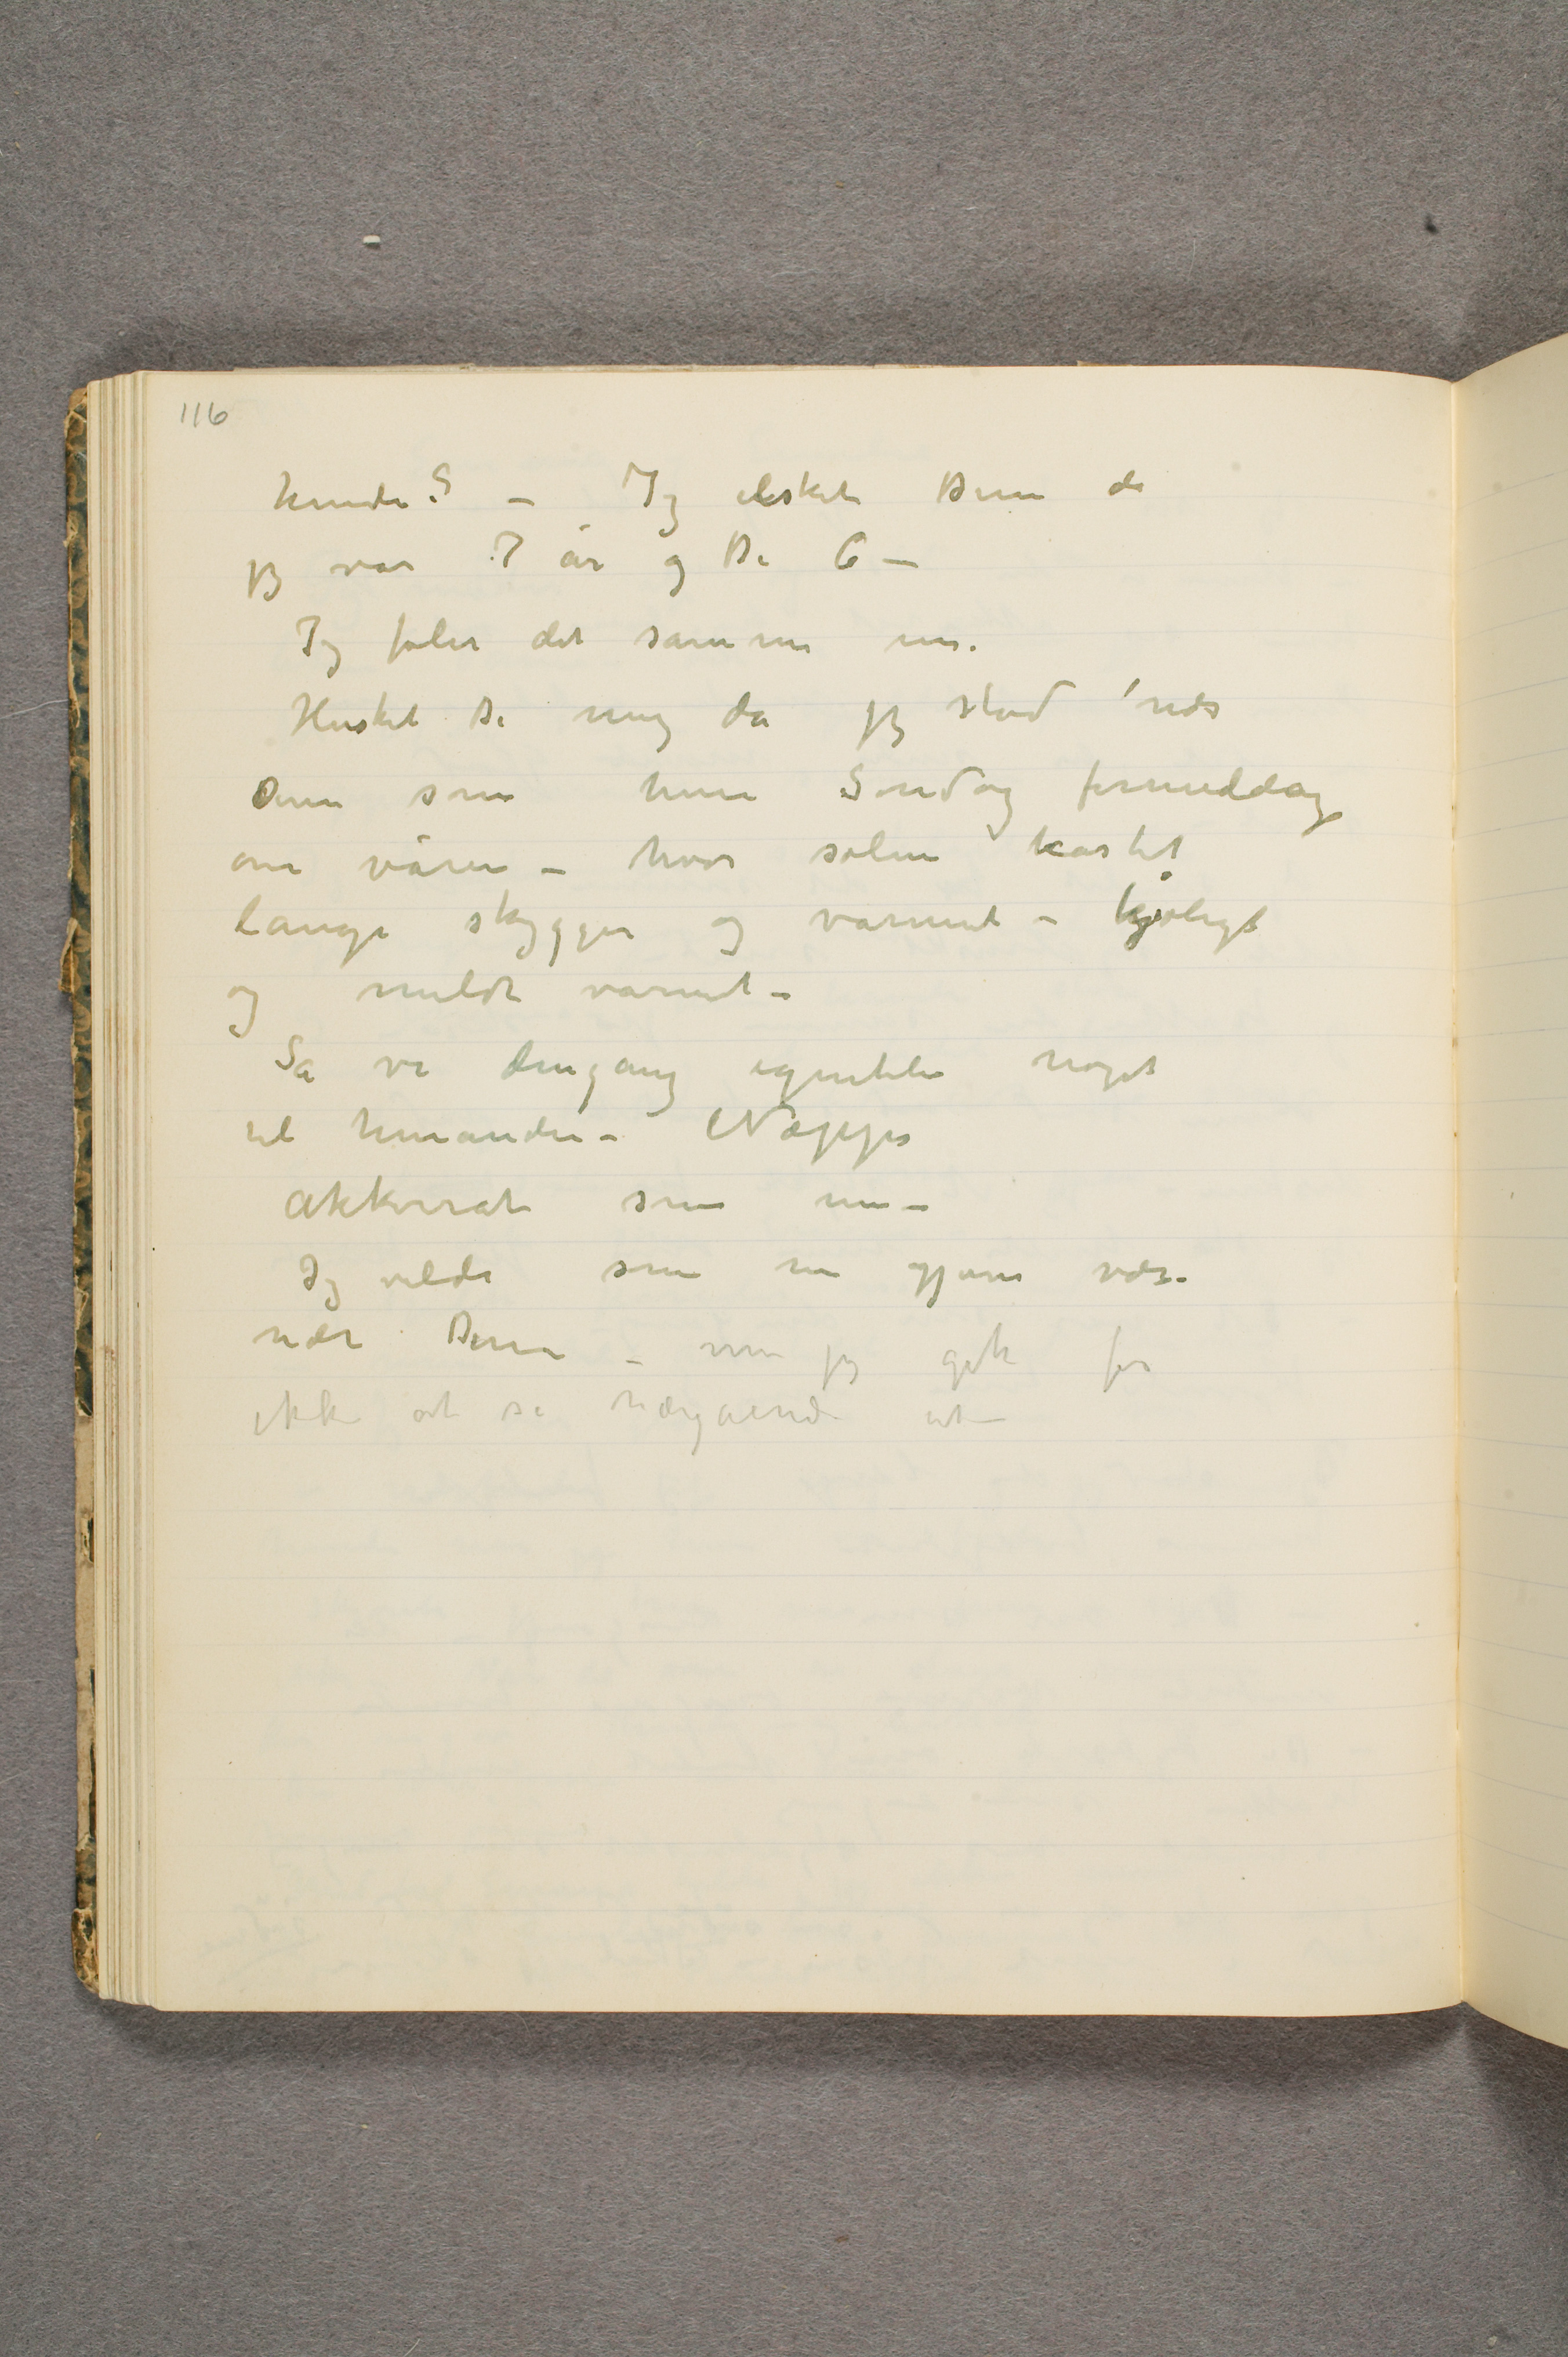 116
kunde? – Jeg elsket Dem da
jeg var 7 år og De 6 –
Jeg føler det samme nu.
Husket De meg da jeg stod nær
Dem som hin Søndag formiddag
om våren – hvor solen kastet
lange skygger og varmet – kjøligt
og mildt varmet –
Sa vi dengang egentlig noget
til hinanden – Neppe
Akkurat som nu –
Jeg vilde som nu gjerne være
nær Dem – men jeg gik for
ikke at se nærgående ut –